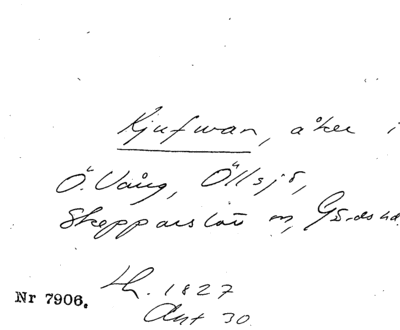 Kjufwan, åker i
Ö. Vång, Öllsjö,
Skepparslöv sn, Gärds hd.
LH. 1827
Akt 30
Nr 7906.